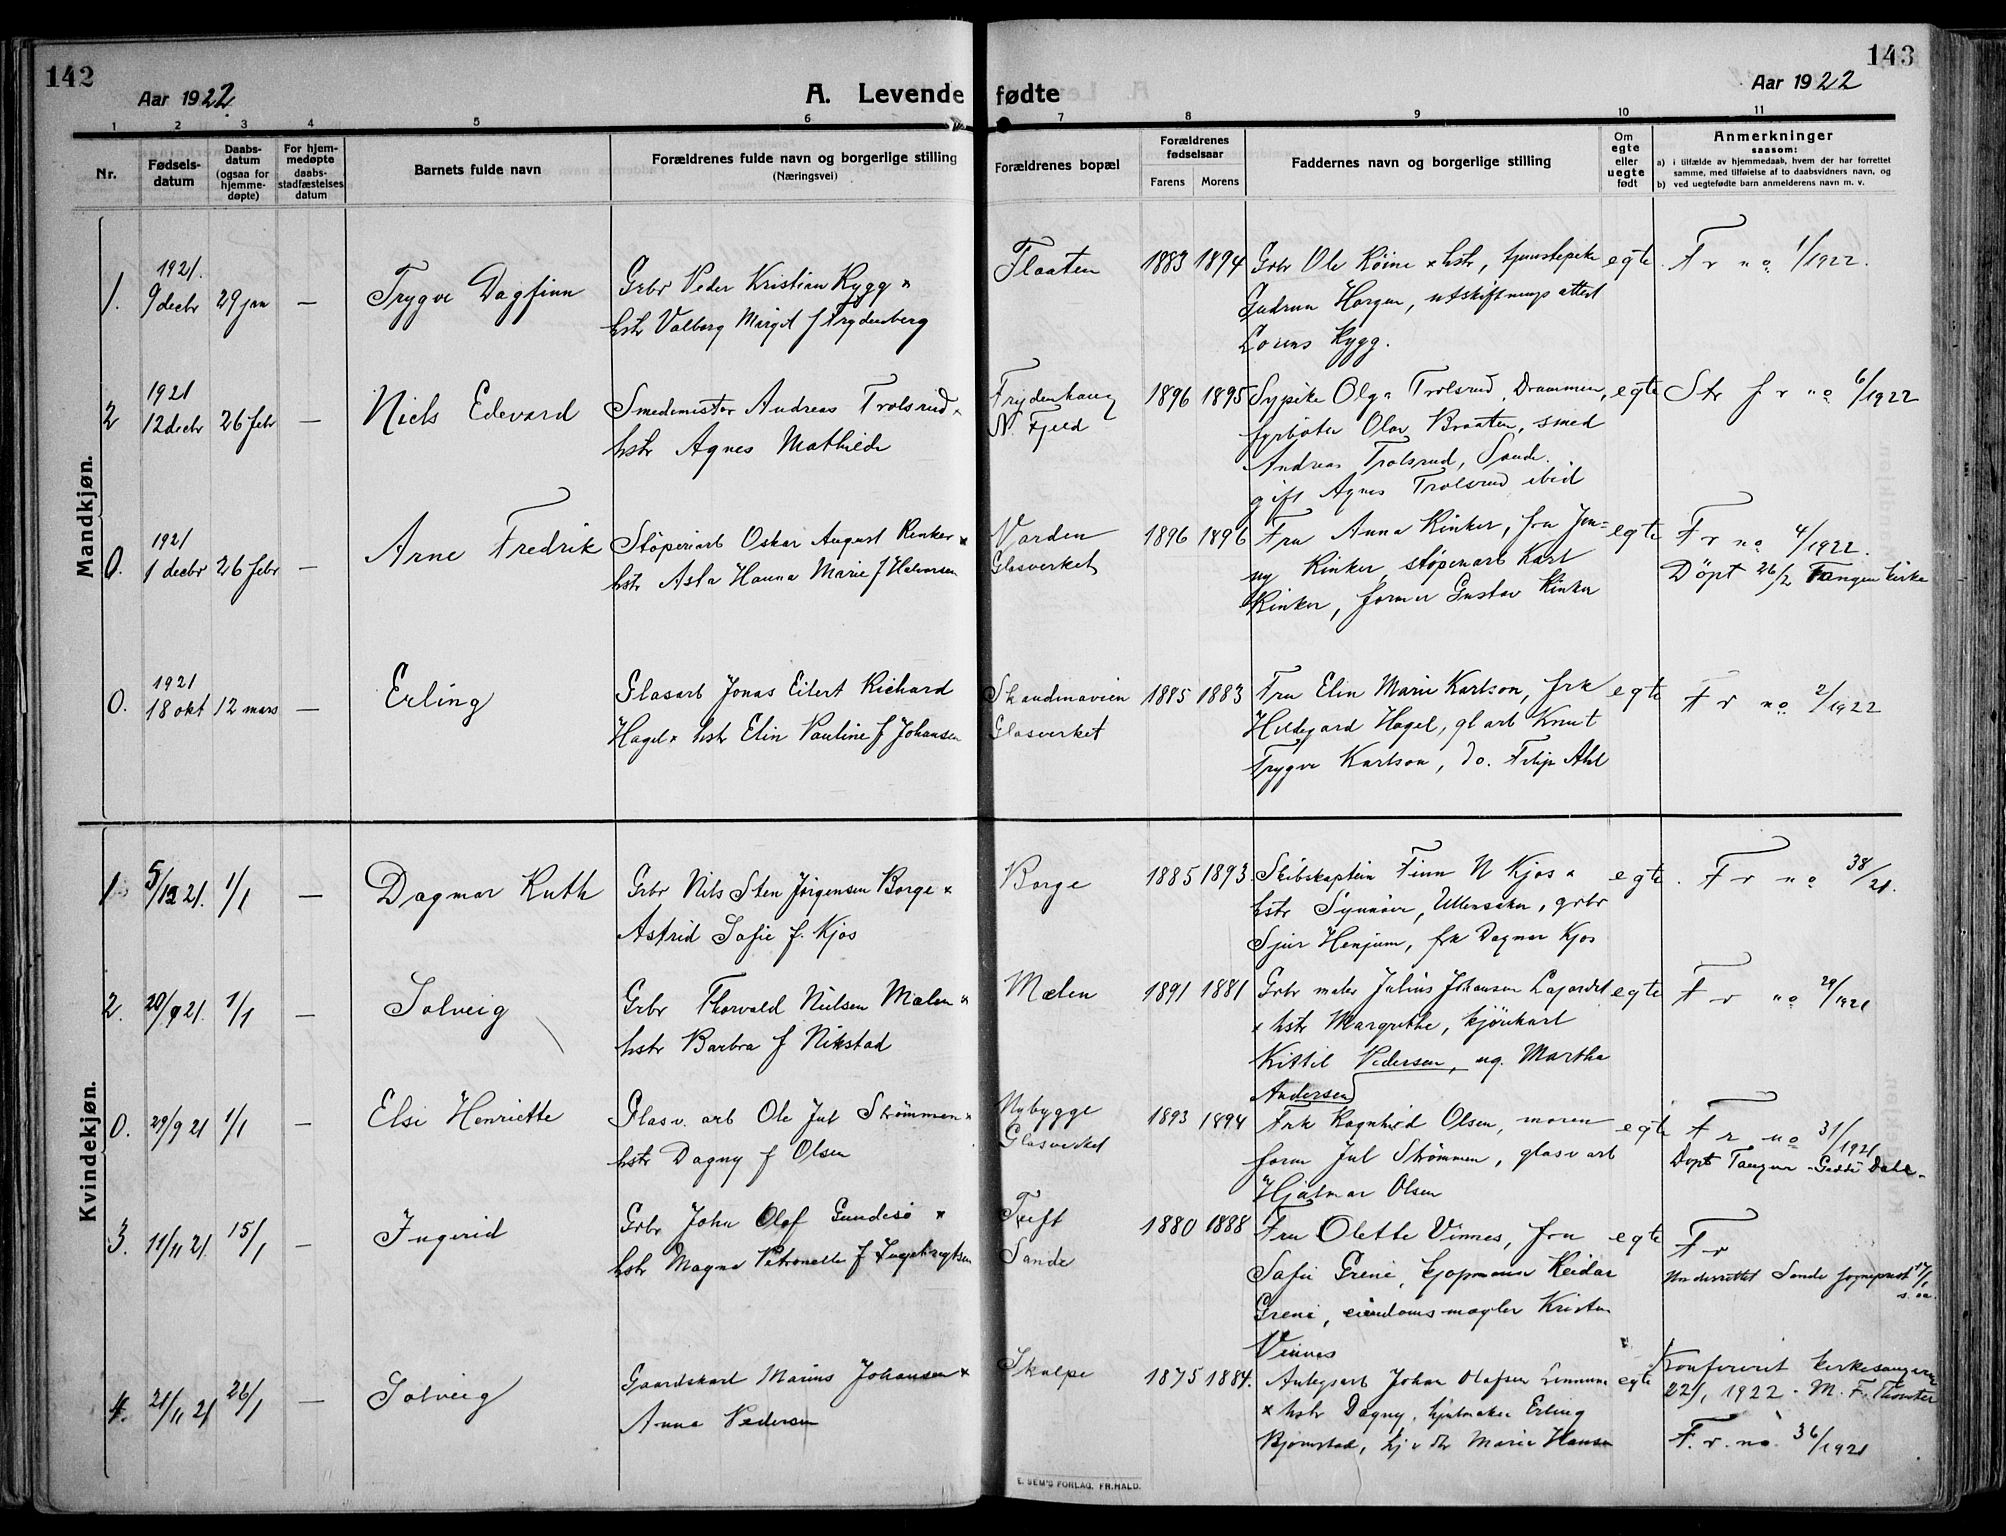 142
Aar 1922
A. Levende fødte
Aar 1922
143
1 2 3 4 5 6 7 8 9 10 11
Nr.
Fødsels-
datum
Daabs-
datum
(ogsaa for
hjemme-
døpte)
For hjem-
medøpte
daabs-
stadfæstelses
datum
Barnets fulde navn
Forældrenes fulde navn og borgerlige stilling
(Næringsvei)
Forældrenes bopæl
Forældrenes
fødselsaar
Farens Morens
Faddernes navn og borgerlige stilling
Om
egte
eller
uegte
født
Anmerkninger
saasom:
a) i tilfælde av hjemmedaab, hvem der har forrettet
samme, med tilføielse af to daabsvidners navn, og
b) ved uegtefødte barn anmelderens navn m. v.
Mandkjøn.
1. 1921. 9 decbr 29 jan — Trygve Dagfinn
Grbr Peder Kristian Rygg x
hstr Valborg Margit f Frydenberg
Flaaten
1883 1894
Grbr Ole Röine x hstr, tjenestepike
Gudrun Horgen, utskiftnings attest
Lorens Rygg.
egte. F r no 1/1922.
2 1921 12 decbr 26 febr — Niels Edevard
Smedemester Andreas Trolsrud x
hstr Agnes Mathilde
Frydenhaug
N. Fjeld
1896 1895
Sypike Olga Trolsrud, Drammen,
fyrbøter Olav Braaten, smed
Andreas Trolsrud, Sande.
gift Agnes Trolsrud ibid
egte Str f r no 6/1922
0. 1921 1 decbr 26 febr — Arne Fredrik
Støperiarb Oskar August Rinker x
hstr Asla Hanna Marie f Halvorsen
Varden
Glasverket
1896 1896
Fru Anna Rinker, fru Jen=
ny Rinker støperiarb Karl
Rinker, former Gustav Rinker
egte F r no 4/1922.
Döpt 26/2 Tangen kirke
0. 1921 18 okt 12 mars — Erling
Glasarb Jonas Eilert Richard
Hagel x hstr Elin Pauline f Johansen
Skandinavien
Glasverket
1885 1883
Fru Elin Marie Karlson, frk
Hildegard Hagel, gl arb Knut
Trygve Karlson, do. Filip Ahl
egte F r no 2/1922
Kvindekjøn.
1. 5/12 21. 1/1 — Dagmar Ruth
Grbr Nils Sten Jørgensen Borge x
Astrid Sofie f. Kjos
Borge
1885 1893.
Skibskaptein Finn N Kjos x
hstr Synnøve, Ullensaker, grbr
Sjur Henjum, frk Dagmar Kjos
egte. F r no 38/21.
2. 20/9 21. 1/1 — Solveig
Grbr Thorvald Nielsen Mælen x
hstr Barbra f Nikstad
Mælen
1891 1881
Grbr maler Julius Johansen Lagardet
x hstr Margrethe, kjörekarl
Kittil Pedersen, ug. Martha
Andersen
egte F r no 29/1921
0. 29/9 21 1/1 — Elsi Henriette
Glasv. arb Ole Jul Strømmen x
hstr Dagny f Olsen
Nybygge
Glasverket
1893 1894
Frk Ragnhild Olsen, moren
form Jul Strømmen, glasv arb
Hjalmar Olsen
egte F r no 31/1921
Döpt Tangen
3. 11/11 21. 15/1 — Ingerid
Grbr John Olof Gundesö x
hstr Magna Petronelle f Ingebregtsen
Tuft
Sande
1880 1888
Fru Olette Vinnes, fru
Sofie Greni, kjøpmann Reidar
Greni, eiendomsmægler Kristen
Vinnes
egte F r
Underrettet Sande sogneprest 17/1
s. aa.
4. 21/11 21 26/1 — Solveig
Gaardskarl Marius Johansen x
Anna Pedersen
Skalpe
1875 1884.
Anlegsarb Johan Olafsen
x hstr Dagny, hjulmaker Erling
Bjørnstad, Marie Hansen
egte Konfererit kirkesangeren
22/1 1922. M. F.
F. r. no. 36/1921
E. SEM'S FORLAG, FR.HALD.